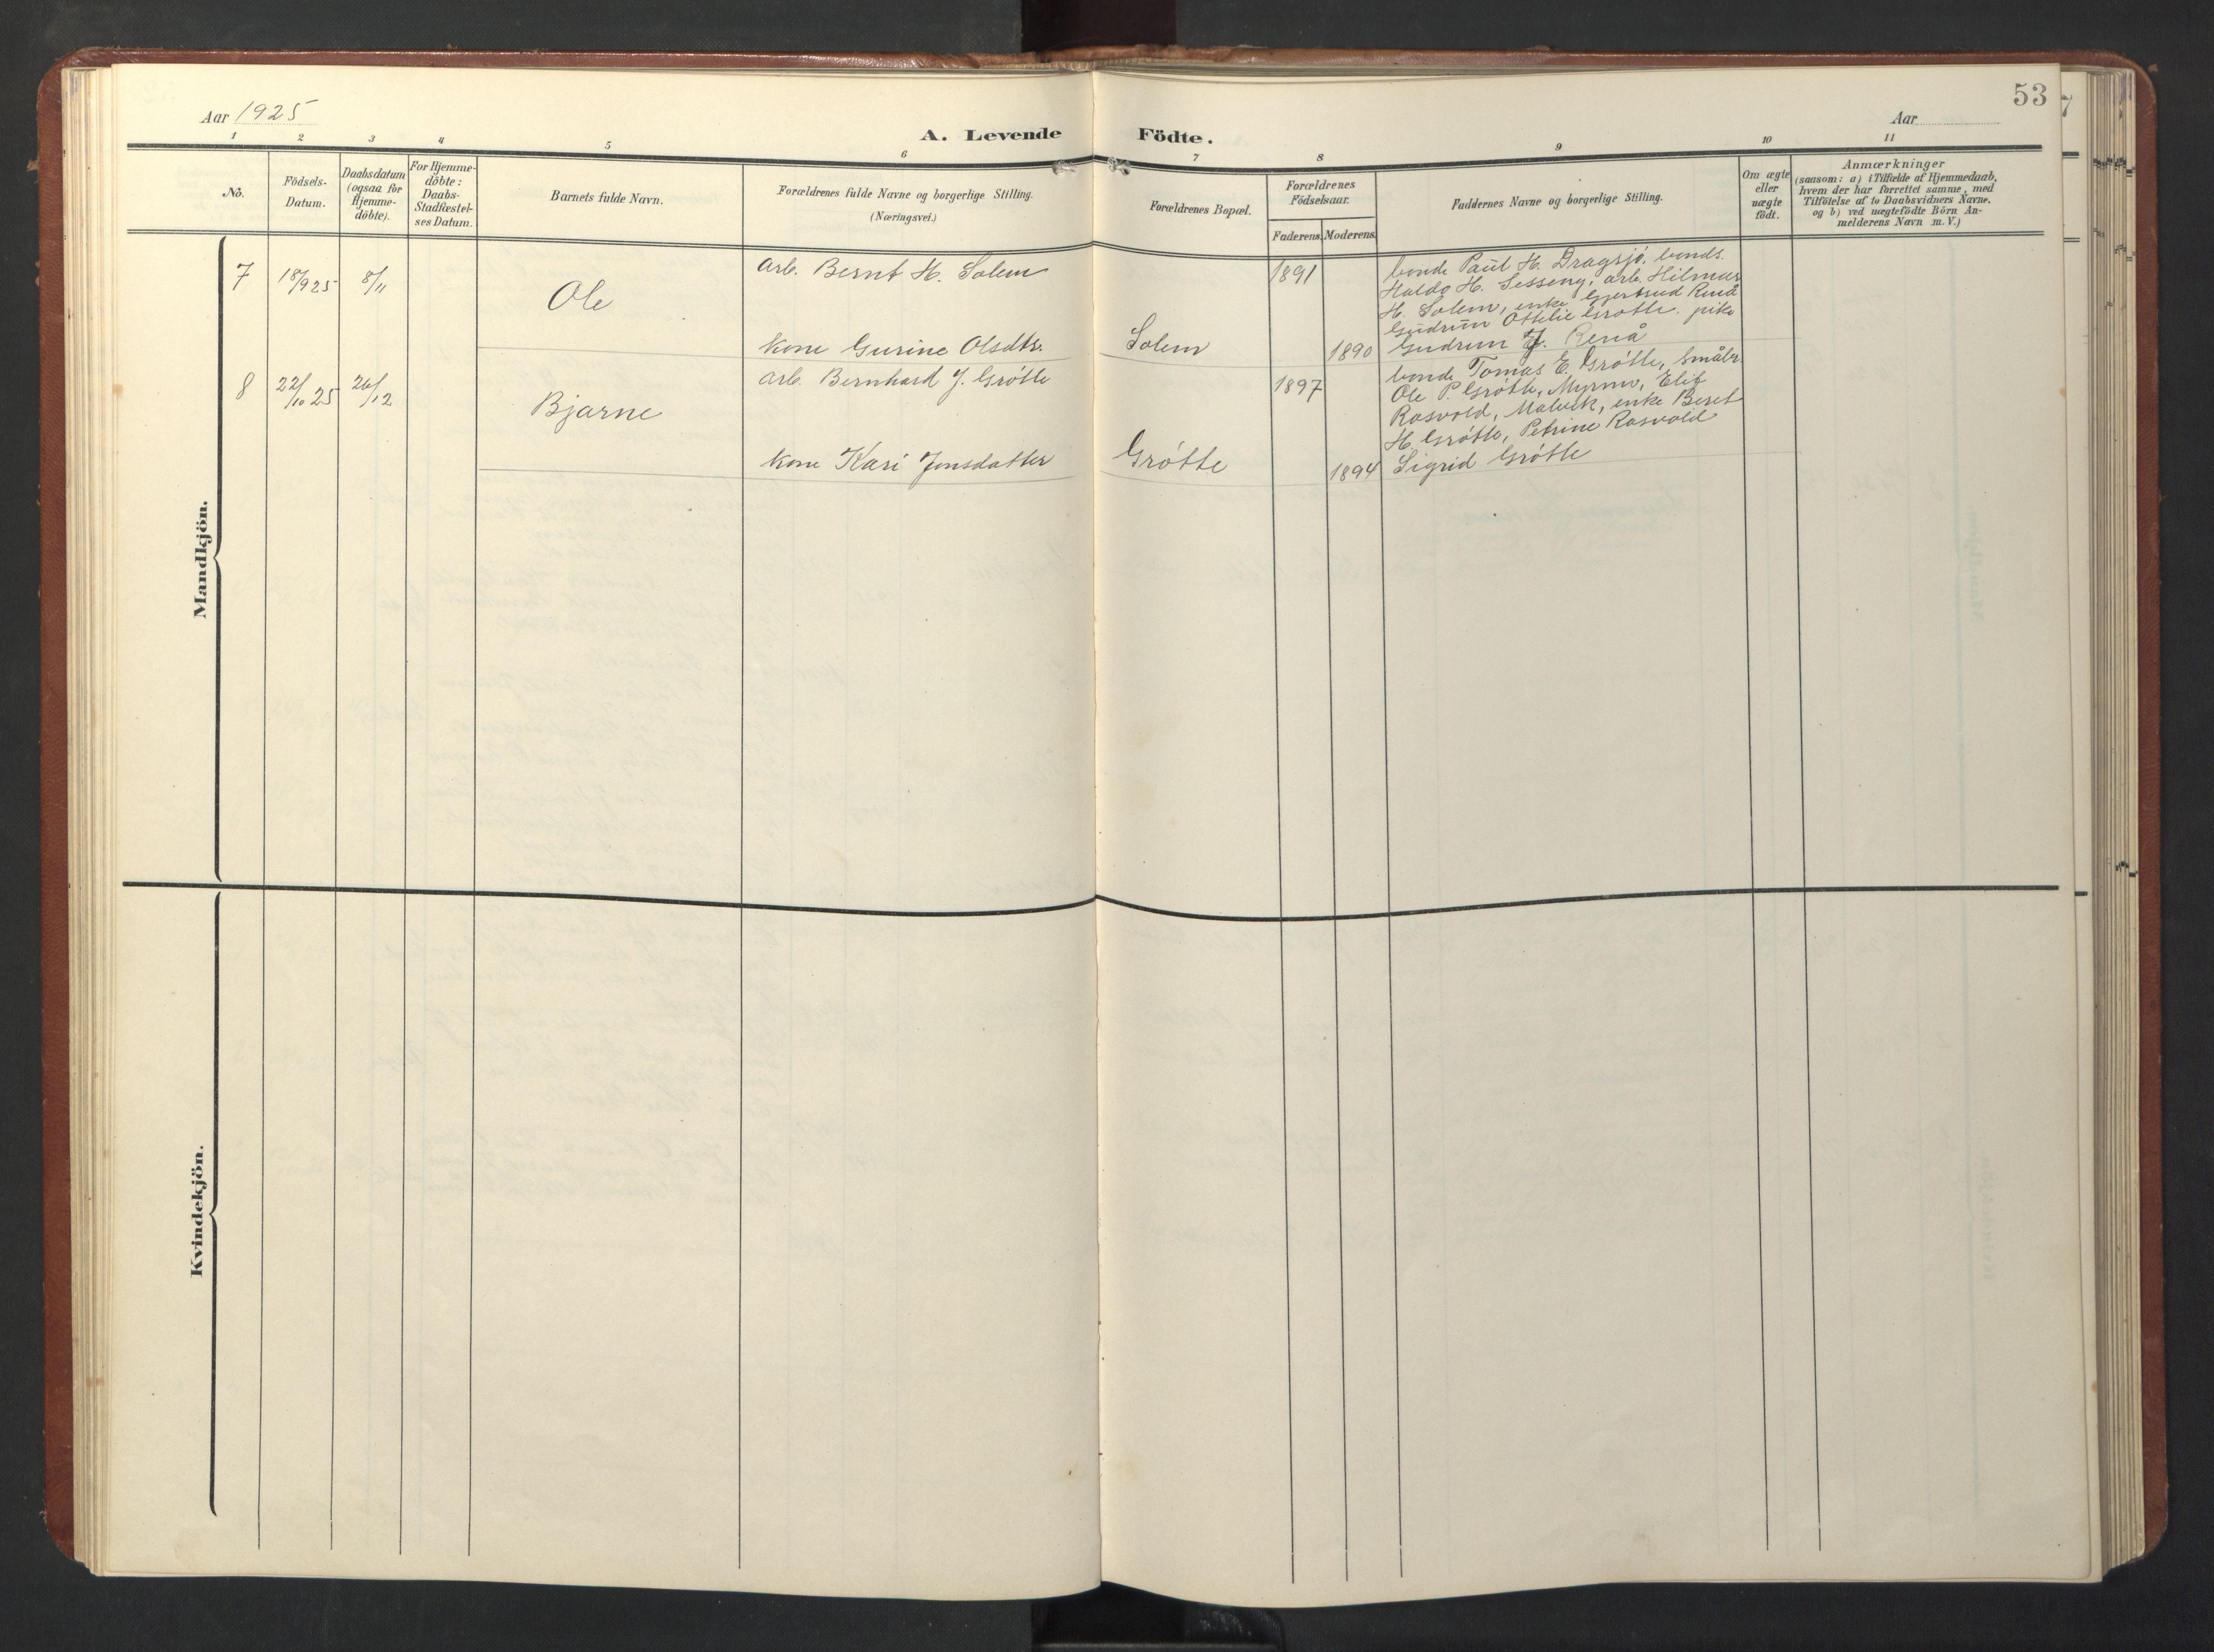 53
Aar 1925
Aar
A. Levende Födte.
1 2 3 4 5 6 7 8 9 10 11
No.
Födsels-
Datum.
Daabsdatum
(ogsaa for
Hjemme-
döbte).
For Hjemme-
döbte:
Daabs-
Stadfæstel-
ses Datum.
Barnets fulde Navn.
Forældrenes fulde Navne og borgerlige Stilling.
(Næringsvei.)
Forældrenes Bopæl.
Forældrenes
Födselsaar.
Faderens. Moderens.
Faddernes Navne og borgerlige Stilling.
Om ægte
eller
uægte
födt.
Anmærkninger
(saasom: a) i Tilfælde af Hjemmedaab,
hvem der har forrettet samme, med
Tilföielse af to Daabsvidners Navne,
og b) ved uægtefödte Börn An-
melderens Navn m.V.)
Mandkjön.
7 18/9 25 8/11
Ole
arb. Bernt H. Solem
kone Gurine Olsdtr.
Solem
1891
1890
bonde Paul H. Dragsjö, bonds.
Haldo H. Sesseng, arb. Hilmar
H. Solem, enke Gjertrud Renå
Gudrun Ottelie Grøtte. pike
Gudrun J. Renå
8 22/10 25 26/12
Bjarne
arb. Bernhard J. Grøtte
kone Kari Jonsdatter
Grøtte
1897
1894
bonde Tomas E. Grøtte, småbr
Ole P. Grøtte, Myrmo, Elif
Rosvold, Malvik, enke Beret
H. Grøtte, Petrine Rosvold
Sigrid Grøtte
Kvindekjön.